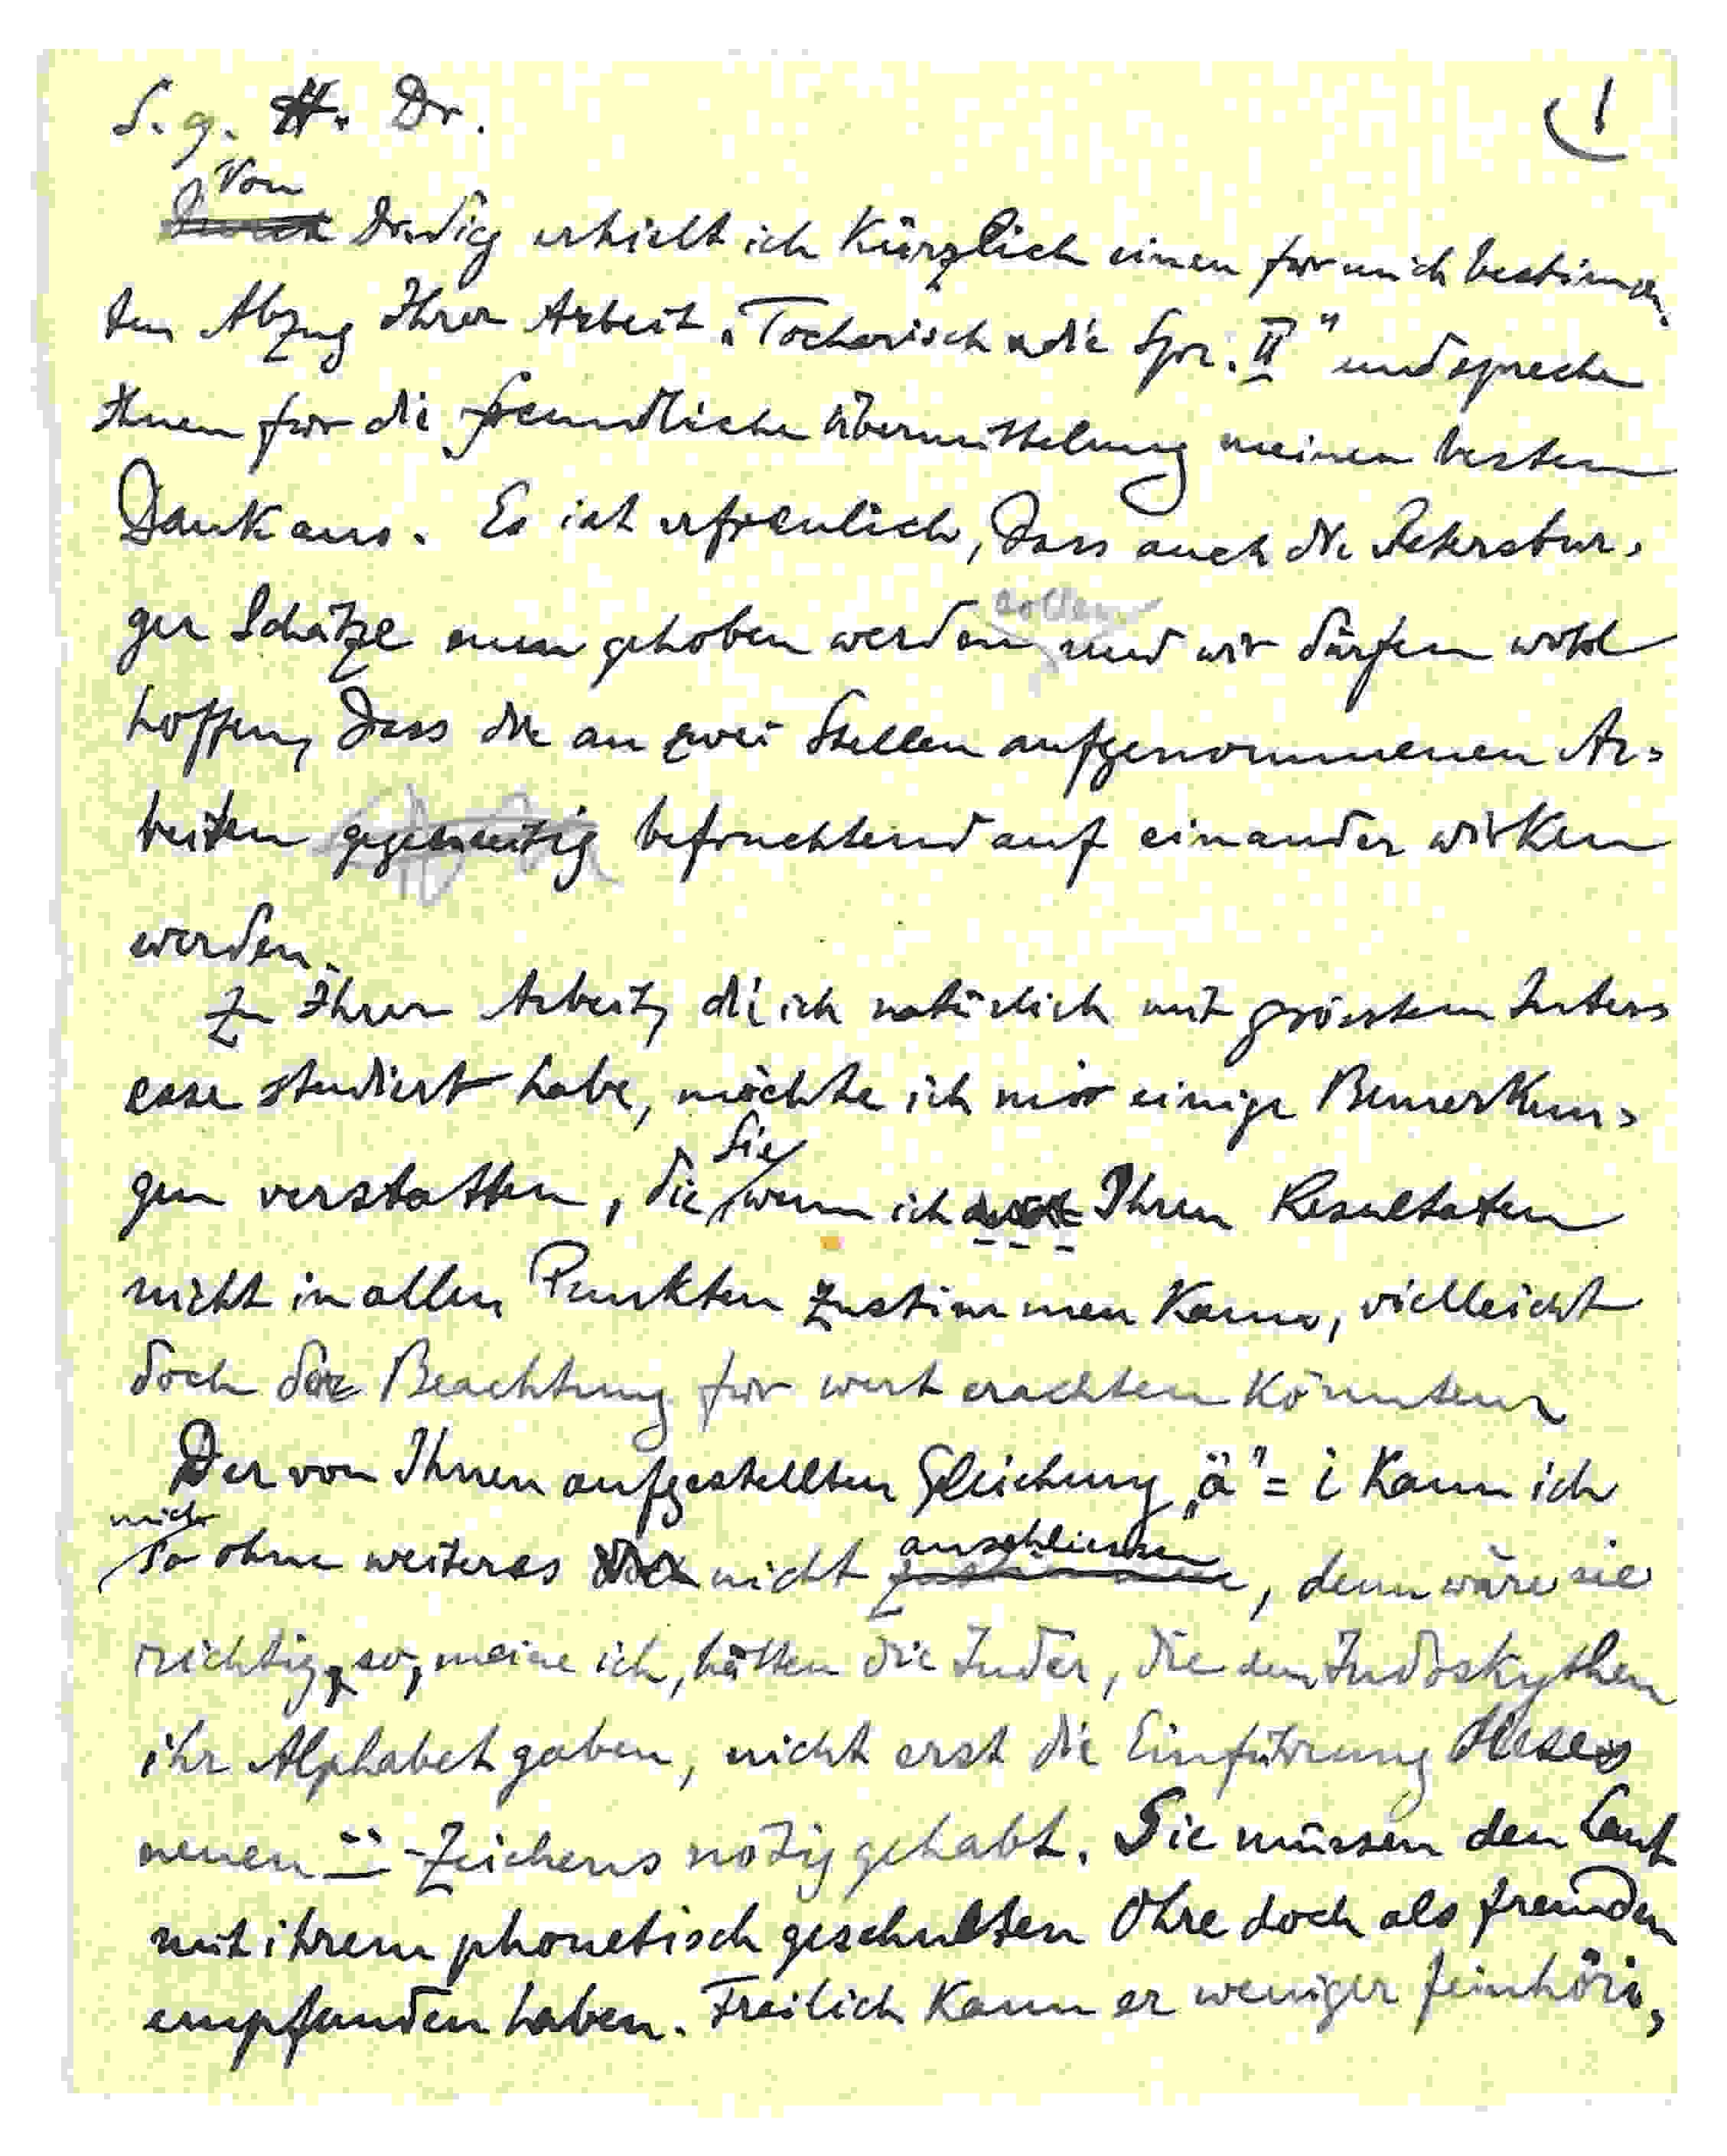 S. g. H. Dr. 1
Von
Durch Dr. Sieg erhielt ich kürzlich einen für mich bestimm
ten Abzug Ihrer Arbeit „Tocharisch u die Spr. II" und spreche
Ihnen für die freundliche Übermittelung meinen besten
Dank aus. Es ist erfreulich, dass auch die Petersbur-
sollen
ger Schätze nun gehoben werden und wir dürfen wohl
hoffen, dass die an zwei Stellen aufgenommenen Ar-
beiten gegenseitig befruchtend auf einander wirken
werden.
Zu Ihrer Arbeit, die ich natürlich mit grösstem Inter-
esse studiert habe, möchte ich mir einige Bemerkun-
Sie
gen verstatten, die wenn ich Ihren Resultaten
nicht in allen Punkten zustimmen kann, vielleicht
doch der Beachtung für wert erachten könnten
Der von Ihnen aufgestellten Gleichung „ä" = i kann ich
mich anschliessen
so ohne weiteres nicht zustimmen, denn wäre sie
richtig, so, meine ich, hätten die Inder, die den Indoskythen
ihr Alphabet gaben, nicht erst die Einführung dieses
neuen ¨ -Zeichens nötig gehabt. Sie müssen den Laut
mit ihrem phonetisch geschulten Ohre doch als fremden
empfunden haben. Freilich kann er weniger feinhöri-